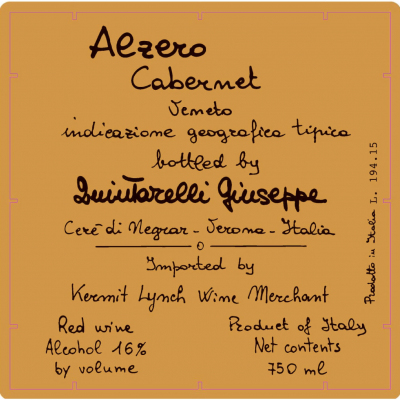 Alzero
Cabernet
Veneto
indicazione geografica tipica
bottled by
Quintarelli Giuseppe
Cerè di Negrar - Verona - Italia
Imported by
Kermit Lynch Wine Merchant
Red wine
Alcohol 16%
by volume
Product of Italy
Net contents
750 ml
Prodotto in Italia L. 194.15